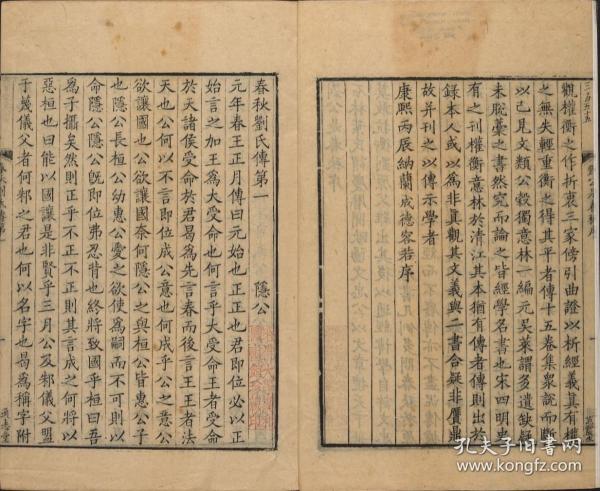 觀權衡之作折衷三家傍引曲證以析經義真有權
之無失輕重衡之得其平者傳十五卷集衆說而斷
以己見文類公穀獨意林一編元吳萊謂多遺缺疑
未脫稾之書然究而論之皆經學名書也宋四明史
有之刊權衡意林於清江其本猶有傳者傳則出於
録本人或以為非真觀其文義與二書合疑非贋鼎
故并刊以傳示學者
康熙丙辰納蘭成德容若序
春秋劉氏傳第一 隱公
元年春王正月傳曰元始也正正也君即位必以正
始言之加王為大受命也何言乎大受命王者受命
於天諸侯受命於君曷為先言春而後言王王者法
天也公何以不言即位成公意也何成乎公之意公
欲讓國也公欲讓國奈何隱公之與桓公皆惠公子
也隱公長桓公幼惠公愛之欲使為嗣而不可則以
命隱公隱公既即位弗忍背也終將致國乎桓曰吾
為子攝矣然則正乎不正不正則其言成之何將以
惡桓也曰能以國讓是非賢乎三月公及邾儀父盟
于蔑儀父者何邾之君也何以名字也曷為稱字附
通志堂
孔夫子旧书网
www.kongfz.com